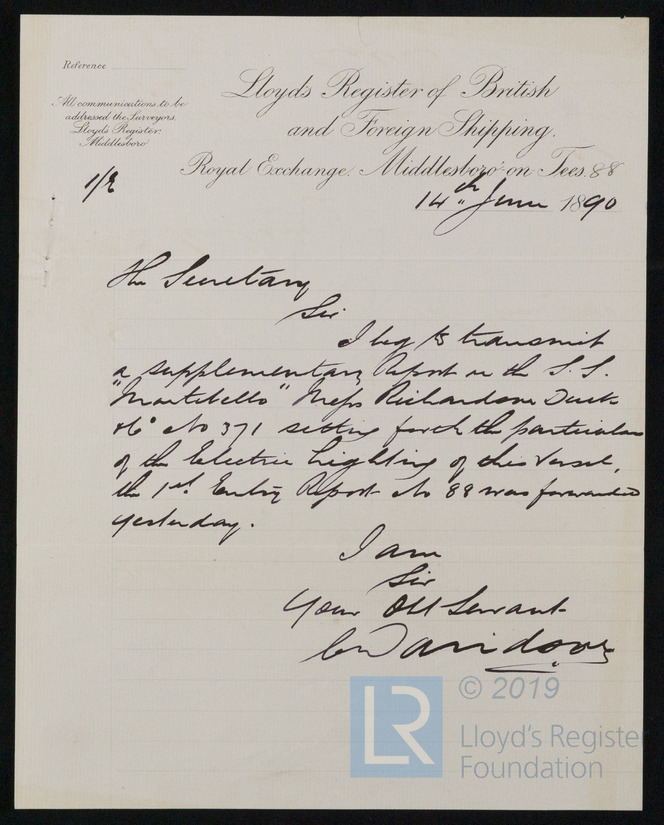 Reference
All communications to be
addressed the Surveyors,
Lloyd's Register.
Middlesboro'
Lloyd's Register of British
and Foreign Shipping.
Royal Exchange. Middlesboro' on Tees. 88
1/E
14th June 1890
The Secretary
Sir
I beg to transmit
a supplementary Report on the S.S.
"Montebello" Messrs Richardson Duck
& Co No 371 setting forth the particulars
of the Electric Lighting of this Vessel,
the 1st Entry Report No 88 was forwarded
yesterday.
I am
Sir
Your Obt Servant
Davidson
LR
© 2019
Lloyd's Register
Foundation